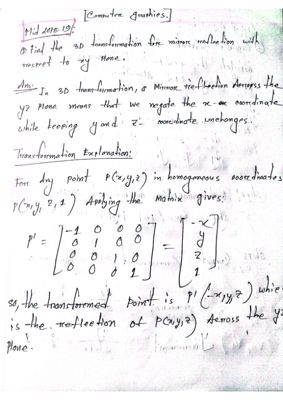 [Computer Graphics.]
Mid 2018-19:
① Find the 3D transformation for mirror reflection with
respect to xy plane.
Ans- In 3D transformation, a Mirror reflection Across the
yz Plane means that we negate the x- coordinate
while keeping y and z coordinate unchanges.
Transformation Explanation:
For Any point P(x,y,z) in homogeneous coordinates
P(x,y,z,1) Applying the Matrix gives:
P' = [-1 0 0 0 = [-x
0 1 0 0 y
0 0 1 0 z
0 0 0 1] 1]
so, the transformed point is P'(-x,y,z) whic
is the reflection of P(x,y,z) Across the yz
Plane.